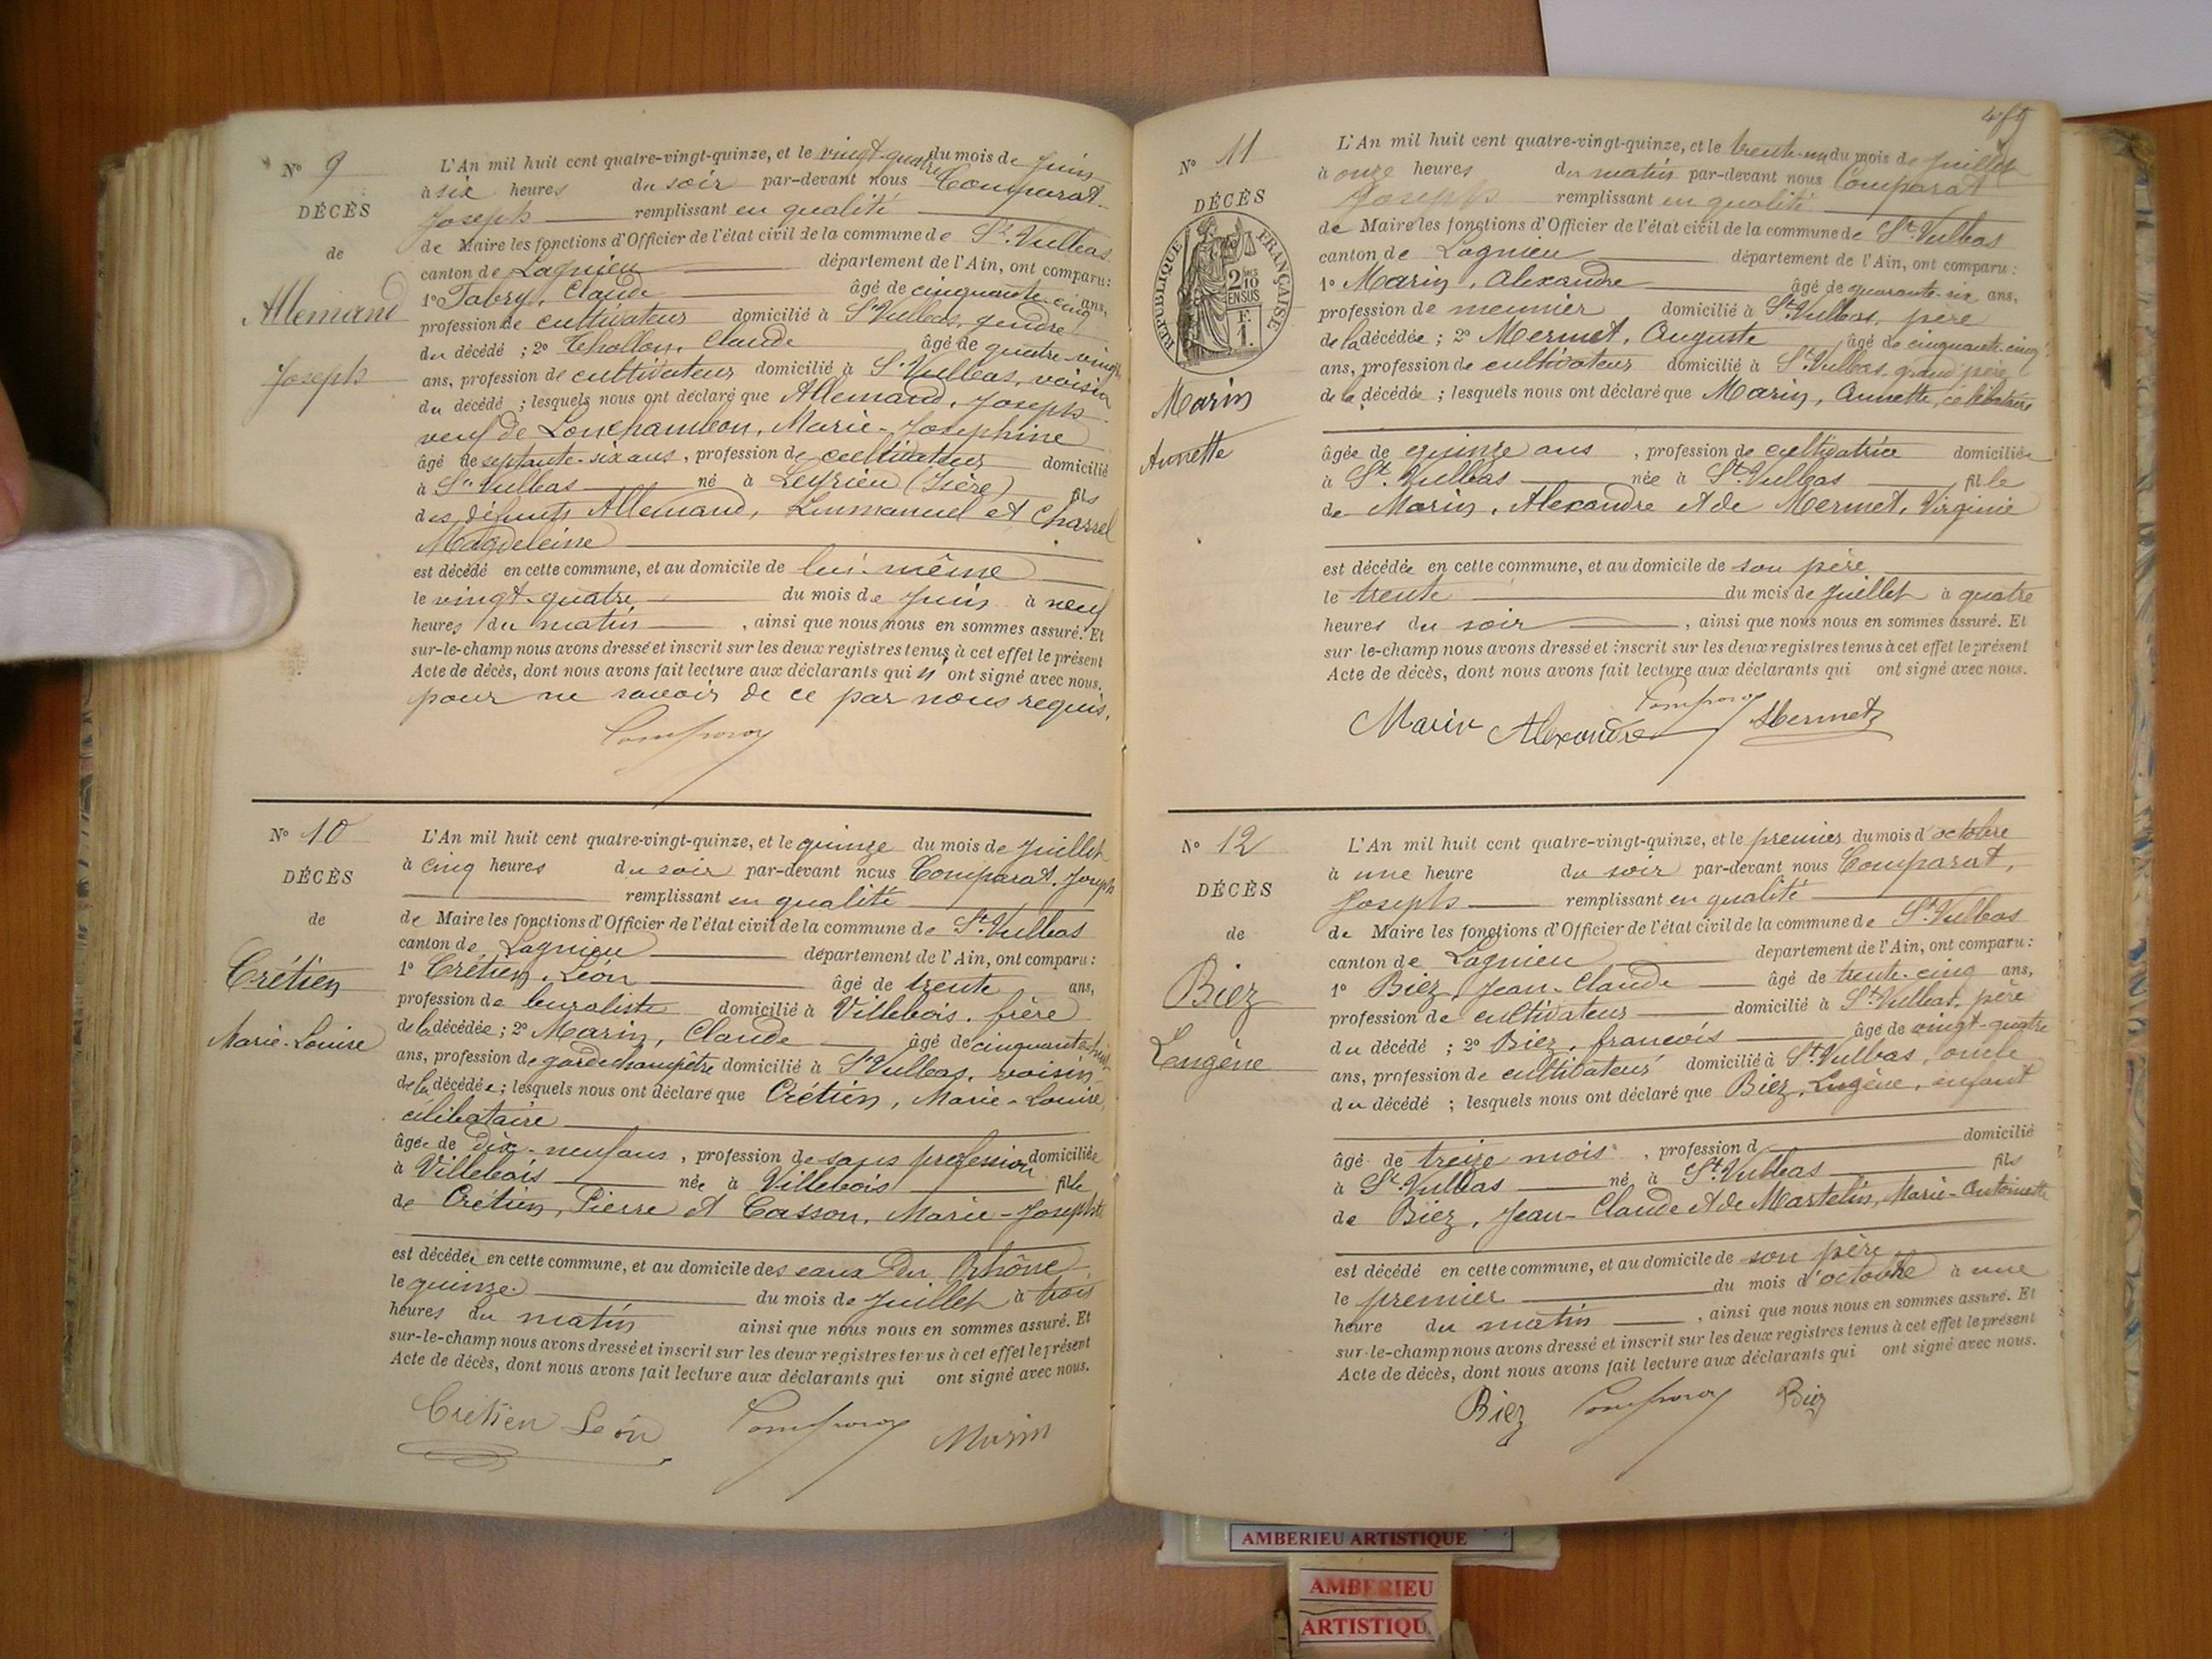 N° 9
DÉCÈS
de
Allemand
Joseph
L'An mil huit cent quatre-vingt-quinze, et le vingt-quatre du mois de Juin
à six heures du soir par-devant nous Comparat
Joseph remplissant en qualité
de Maire les fonctions d'Officier de l'état civil de la commune de St. Vulbas
canton de Lagnieu département de l'Ain, ont comparu:
1° Fabry, Claude âgé de cinquante-cinq ans,
profession de cultivateur domicilié à St Vulbas, gendre
du décédé ; 2° Chollon, Claude âgé de quatre-vingt
ans, profession de cultivateur domicilié à St. Vulbas, voisin
du décédé ; lesquels nous ont déclaré que Allemand, Joseph
veuf de Lonchambon, Marie-Josephine
âgé de septante-six ans, profession de cultivateur domicilié
à St. Vulbas né à Leyrieu (Isère) fils
des défunts Allemand, Emmanuel et Charrel
Magdeleine
est décédé en cette commune, et au domicile de lui-même
le vingt-quatre du mois de Juin à neuf
heures du matin , ainsi que nous nous en sommes assuré. Et
sur-le-champ nous avons dressé et inscrit sur les deux registres tenus à cet effet le présent
Acte de décès, dont nous avons fait lecture aux déclarants qui n'ont signé avec nous.
pour ne savoir de ce par nous requis.
Comparat
N° 10
DÉCÈS
de
Crétien
Marie-Louise
L'An mil huit cent quatre-vingt-quinze, et le quinze du mois de Juillet
à cinq heures du soir par-devant nous Comparat, Joseph
remplissant en qualité
de Maire les fonctions d'Officier de l'état civil de la commune de St. Vulbas
canton de Lagnieu département de l'Ain, ont comparu:
1° Crétien, Léon âgé de trente ans,
profession de buraliste domicilié à Villebois, frère
de la décédée ; 2° Marin, Claude âgé de cinquante-huit
ans, profession de garde champêtre domicilié à St Vulbas, voisin
de la décédée ; lesquels nous ont déclaré que Crétien, Marie-Louise,
célibataire
âgée de dix-neuf ans, profession de sans profession domiciliée
à Villebois née à Villebois fille
de Crétien, Pierre et Casson, Marie-Josephte
est décédée en cette commune, et au domicile des eaux du Rhône
le quinze du mois de Juillet à trois
heures du matin ainsi que nous nous en sommes assuré. Et
sur-le-champ nous avons dressé et inscrit sur les deux registres tenus à cet effet le présent
Acte de décès, dont nous avons fait lecture aux déclarants qui ont signé avec nous.
Crétien Léon Comparat Marin
489
N° 11
DÉCÈS
RÉPUBLIQUE FRANÇAISE
2/10
EN SUS
F.
1.
Marin
Annette
L'An mil huit cent quatre-vingt-quinze, et le trente-un du mois de Juillet
à onze heures du matin par-devant nous Comparat
Joseph remplissant en qualité
de Maire les fonctions d'Officier de l'état civil de la commune de St. Vulbas
canton de Lagnieu département de l'Ain, ont comparu :
1° Marin, Alexandre âgé de quarante-six ans,
profession de meunier domicilié à St. Vulbas, père
de la décédée ; 2° Mermet, Auguste âgé de cinquante-cinq
ans, profession de cultivateur domicilié à St. Vulbas, grand père
de la décédée ; lesquels nous ont déclaré que Marin, Annette, célibataire
âgée de quinze ans , profession de cultivatrice domiciliée
à St. Vulbas née à St. Vulbas fille
de Marin, Alexandre et de Mermet, Virginie
est décédée en cette commune, et au domicile de son père
le trente du mois de Juillet à quatre
heures du soir , ainsi que nous nous en sommes assuré. Et
sur-le-champ nous avons dressé et inscrit sur les deux registres tenus à cet effet le présent
Acte de décès, dont nous avons fait lecture aux déclarants qui ont signé avec nous.
Marin Alexandre Comparat Mermet
N° 12
DÉCÈS
de
Biez
Eugène
L'An mil huit cent quatre-vingt-quinze, et le premier du mois d'octobre
à une heure du soir par-devant nous Comparat,
Joseph remplissant en qualité
de Maire les fonctions d'Officier de l'état civil de la commune de St. Vulbas
canton de Lagnieu département de l'Ain, ont comparu :
1° Biez, Jean-Claude âgé de trente-cinq ans,
profession de cultivateur domicilié à St. Vulbas, père
du décédé ; 2° Biez, françois âgé de vingt-quatre
ans, profession de cultivateur domicilié à St. Vulbas, oncle
du décédé ; lesquels nous ont déclaré que Biez, Eugène, enfant
âgé de treize mois , profession d domicilié
à St. Vulbas né à St. Vulbas fils
de Biez, Jean-Claude et de Martelin, Marie-Antoinette
est décédé en cette commune, et au domicile de son père
le premier du mois d'octobre à une
heure du matin , ainsi que nous nous en sommes assuré. Et
sur-le-champ nous avons dressé et inscrit sur les deux registres tenus à cet effet le présent
Acte de décès, dont nous avons fait lecture aux déclarants qui ont signé avec nous.
Biez Comparat Biez
AMBERIEU ARTISTIQUE
AMBERIEU
ARTISTIQU